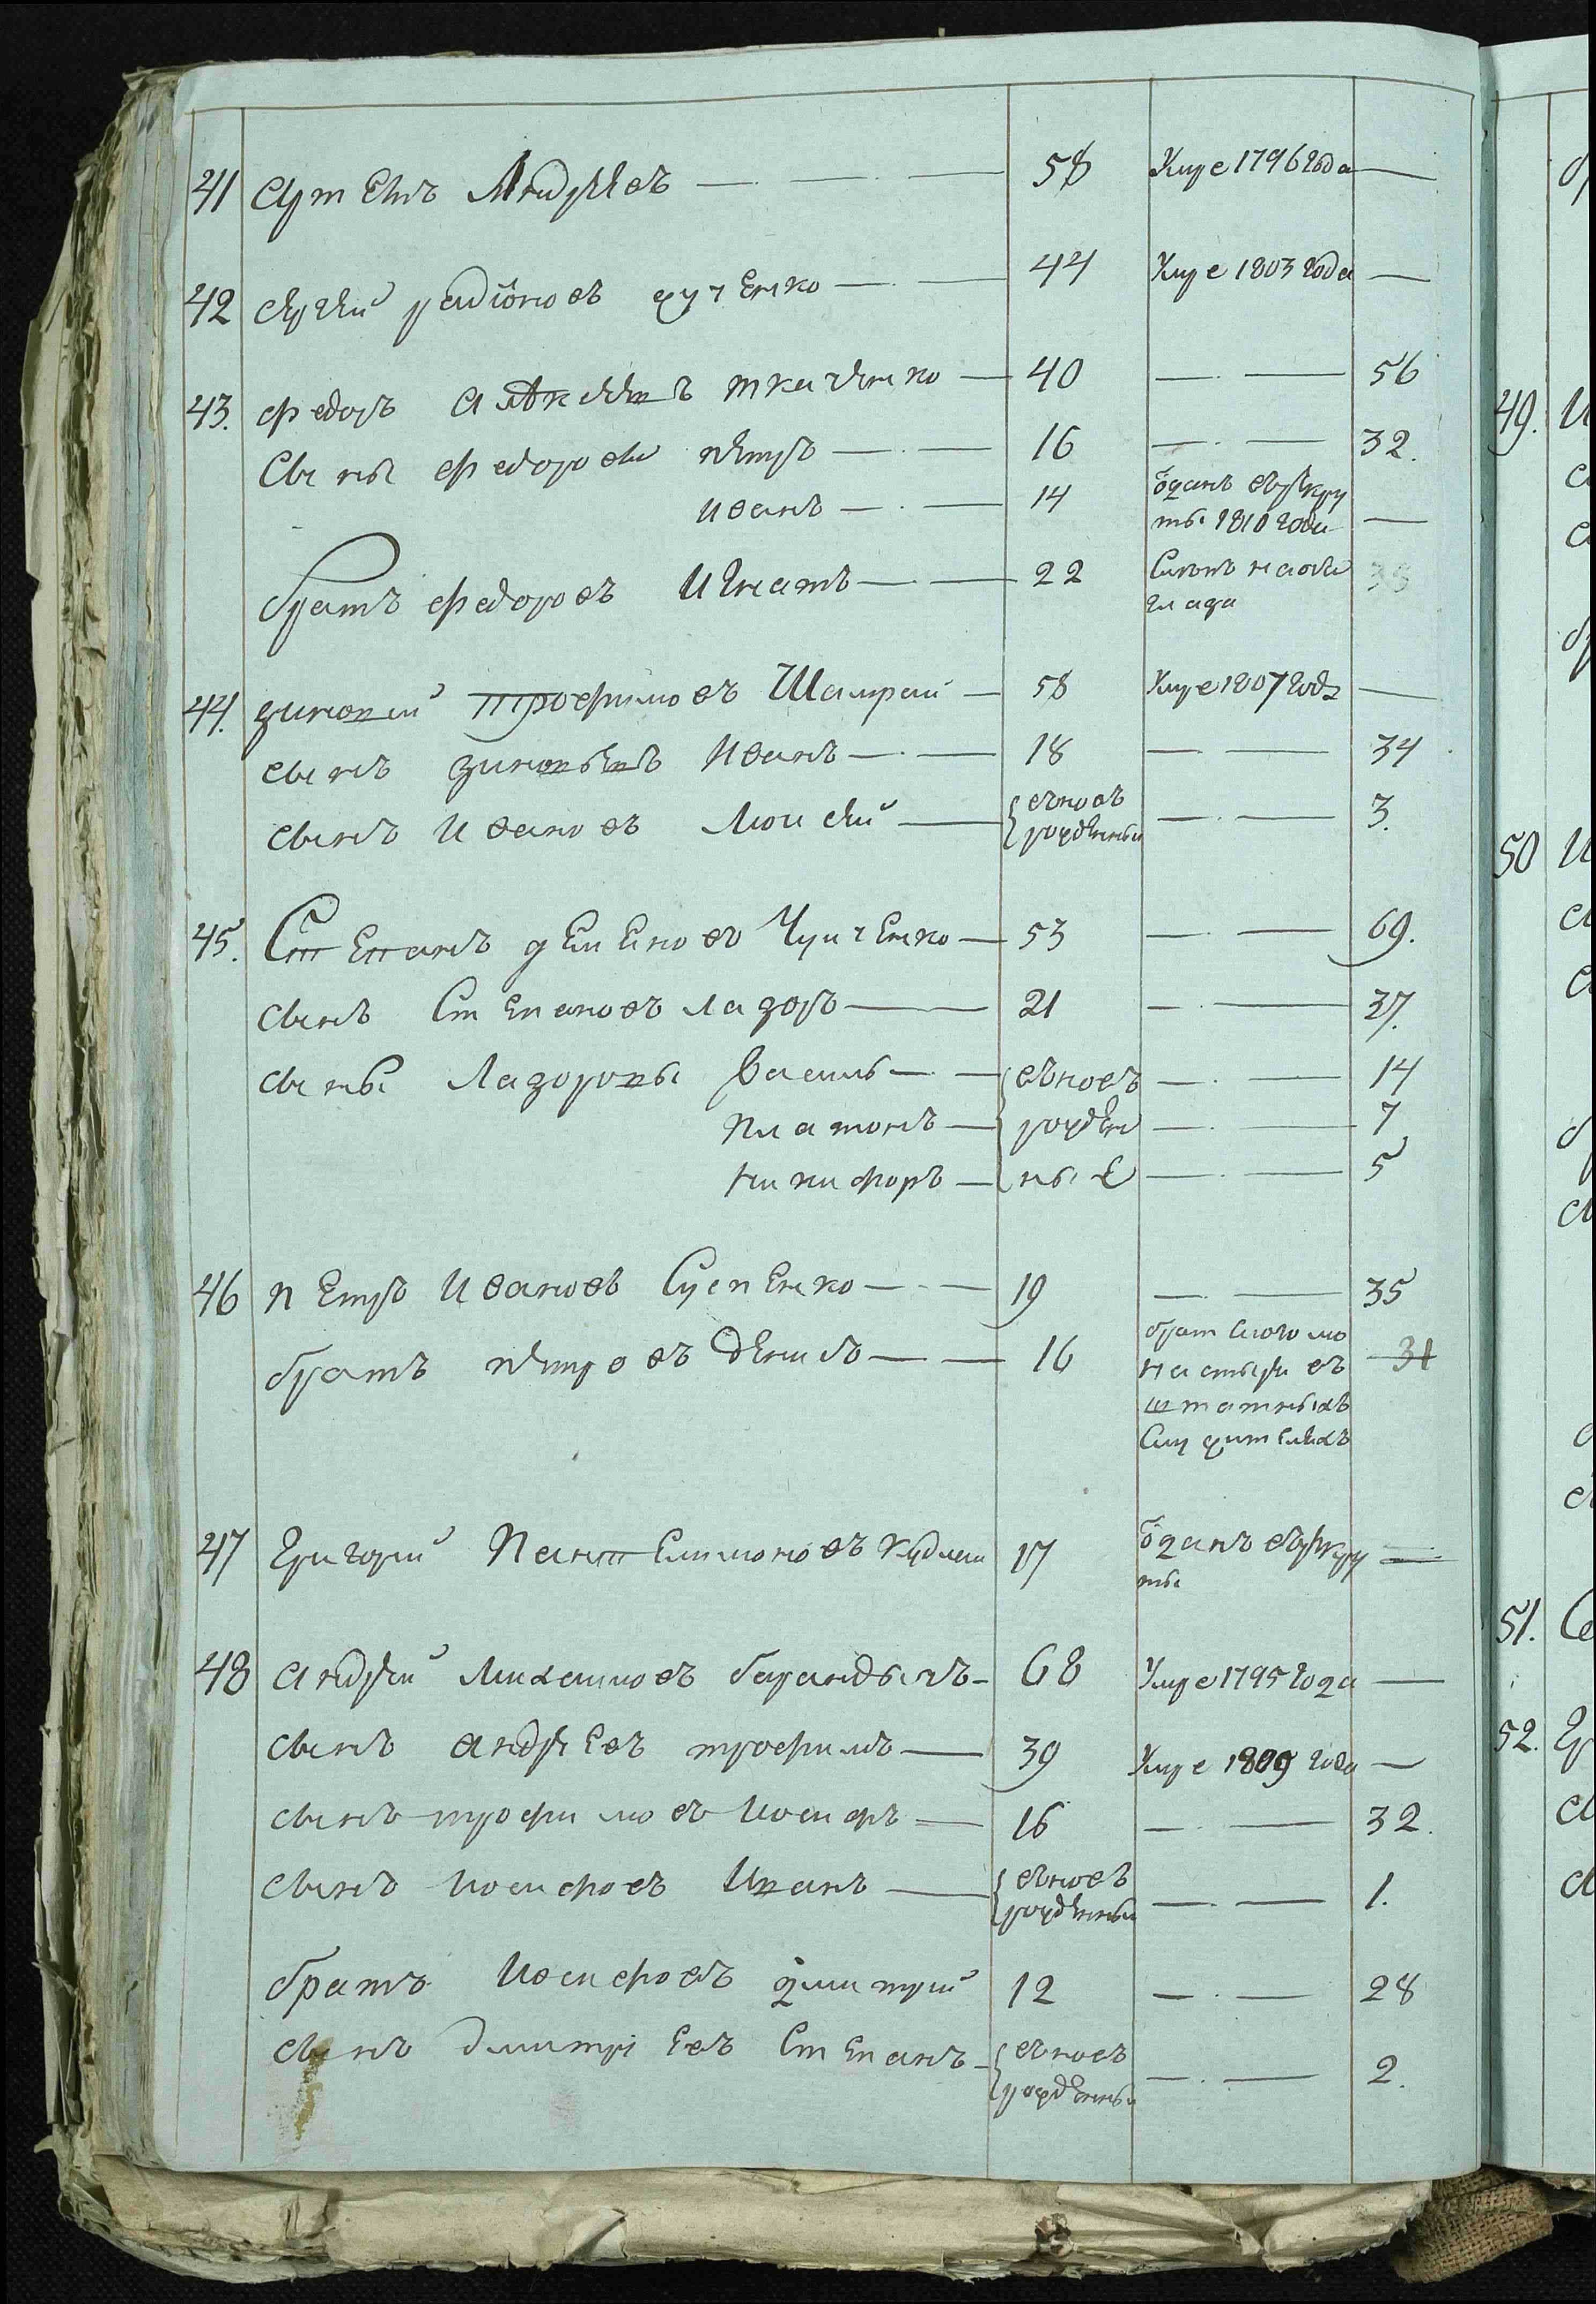 41 Артемъ Андреевъ — 58 Умре 1796 года —
42 Сергей радионовъ хученко — 44 Умре 1803 года —
43. Федоръ Алексеевъ ткаченко — 40 — 56
Сыны Федоровы петръ — 16 — 32.
Иванъ — 14 Отданъ врекру
ты 1810 года —
братъ федоровъ Игнатъ — 22 35
44. зиновий трофимовъ Шамрай — 58 Умре 1807 года —
сынъ зиновьевъ Иванъ — 18 — 34
сынъ Ивановъ Моисей — вновъ
рожденный — 3.
45. Степанъ деменовъ Чуйченко — 53 — 69.
сынъ Степановъ лазоръ — 21 — 37.
сыны Лазоровы Василь — вновъ — 14
Платонъ — рожден — 7
Никифоръ — ные — 5
46 петръ Ивановъ Сусленко — 19 — 35
братъ петровъ Демидъ — 16 31
штатныхъ
Служителяхъ
47 Григорий Пантелимоновъ Кудлай 17 Отданъ врекру —
ты
48 андрей Михайловъ барандычъ — 68 Умре 1795 года —
сынъ андреевъ трофимъ — 39 Умре 1809 года —
сынъ трофимовъ Иосифъ — 16 — 32.
сынъ Иосифовъ Иванъ — вновъ
рожденный — 1.
братъ Иосифовъ дмитрий 12 — 28
сынъ дмитриевъ Степанъ — вновъ
рожденный — 2.
49. И
50 И
51. Се
52. Гр